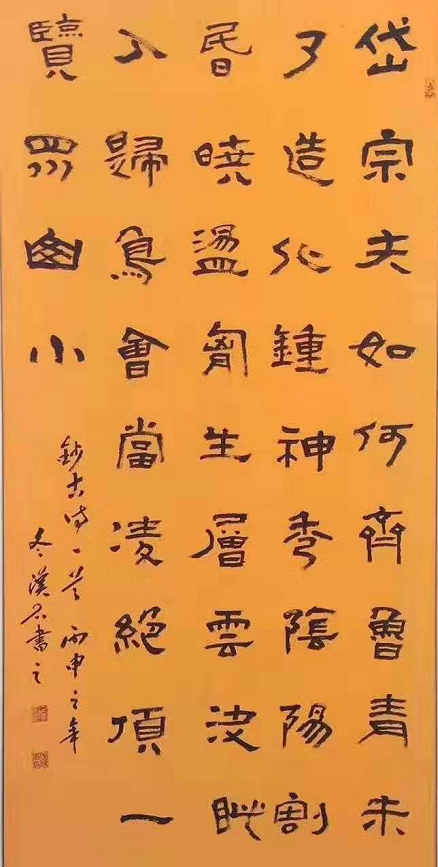 岱宗夫如何齊魯青未
了造化鍾神秀陰陽割
昬曉盪胷生層雲決眦
入歸鳥會當凌絕頂一
覽眾山小
鈔古詩一首丙申之年
冬漢書之